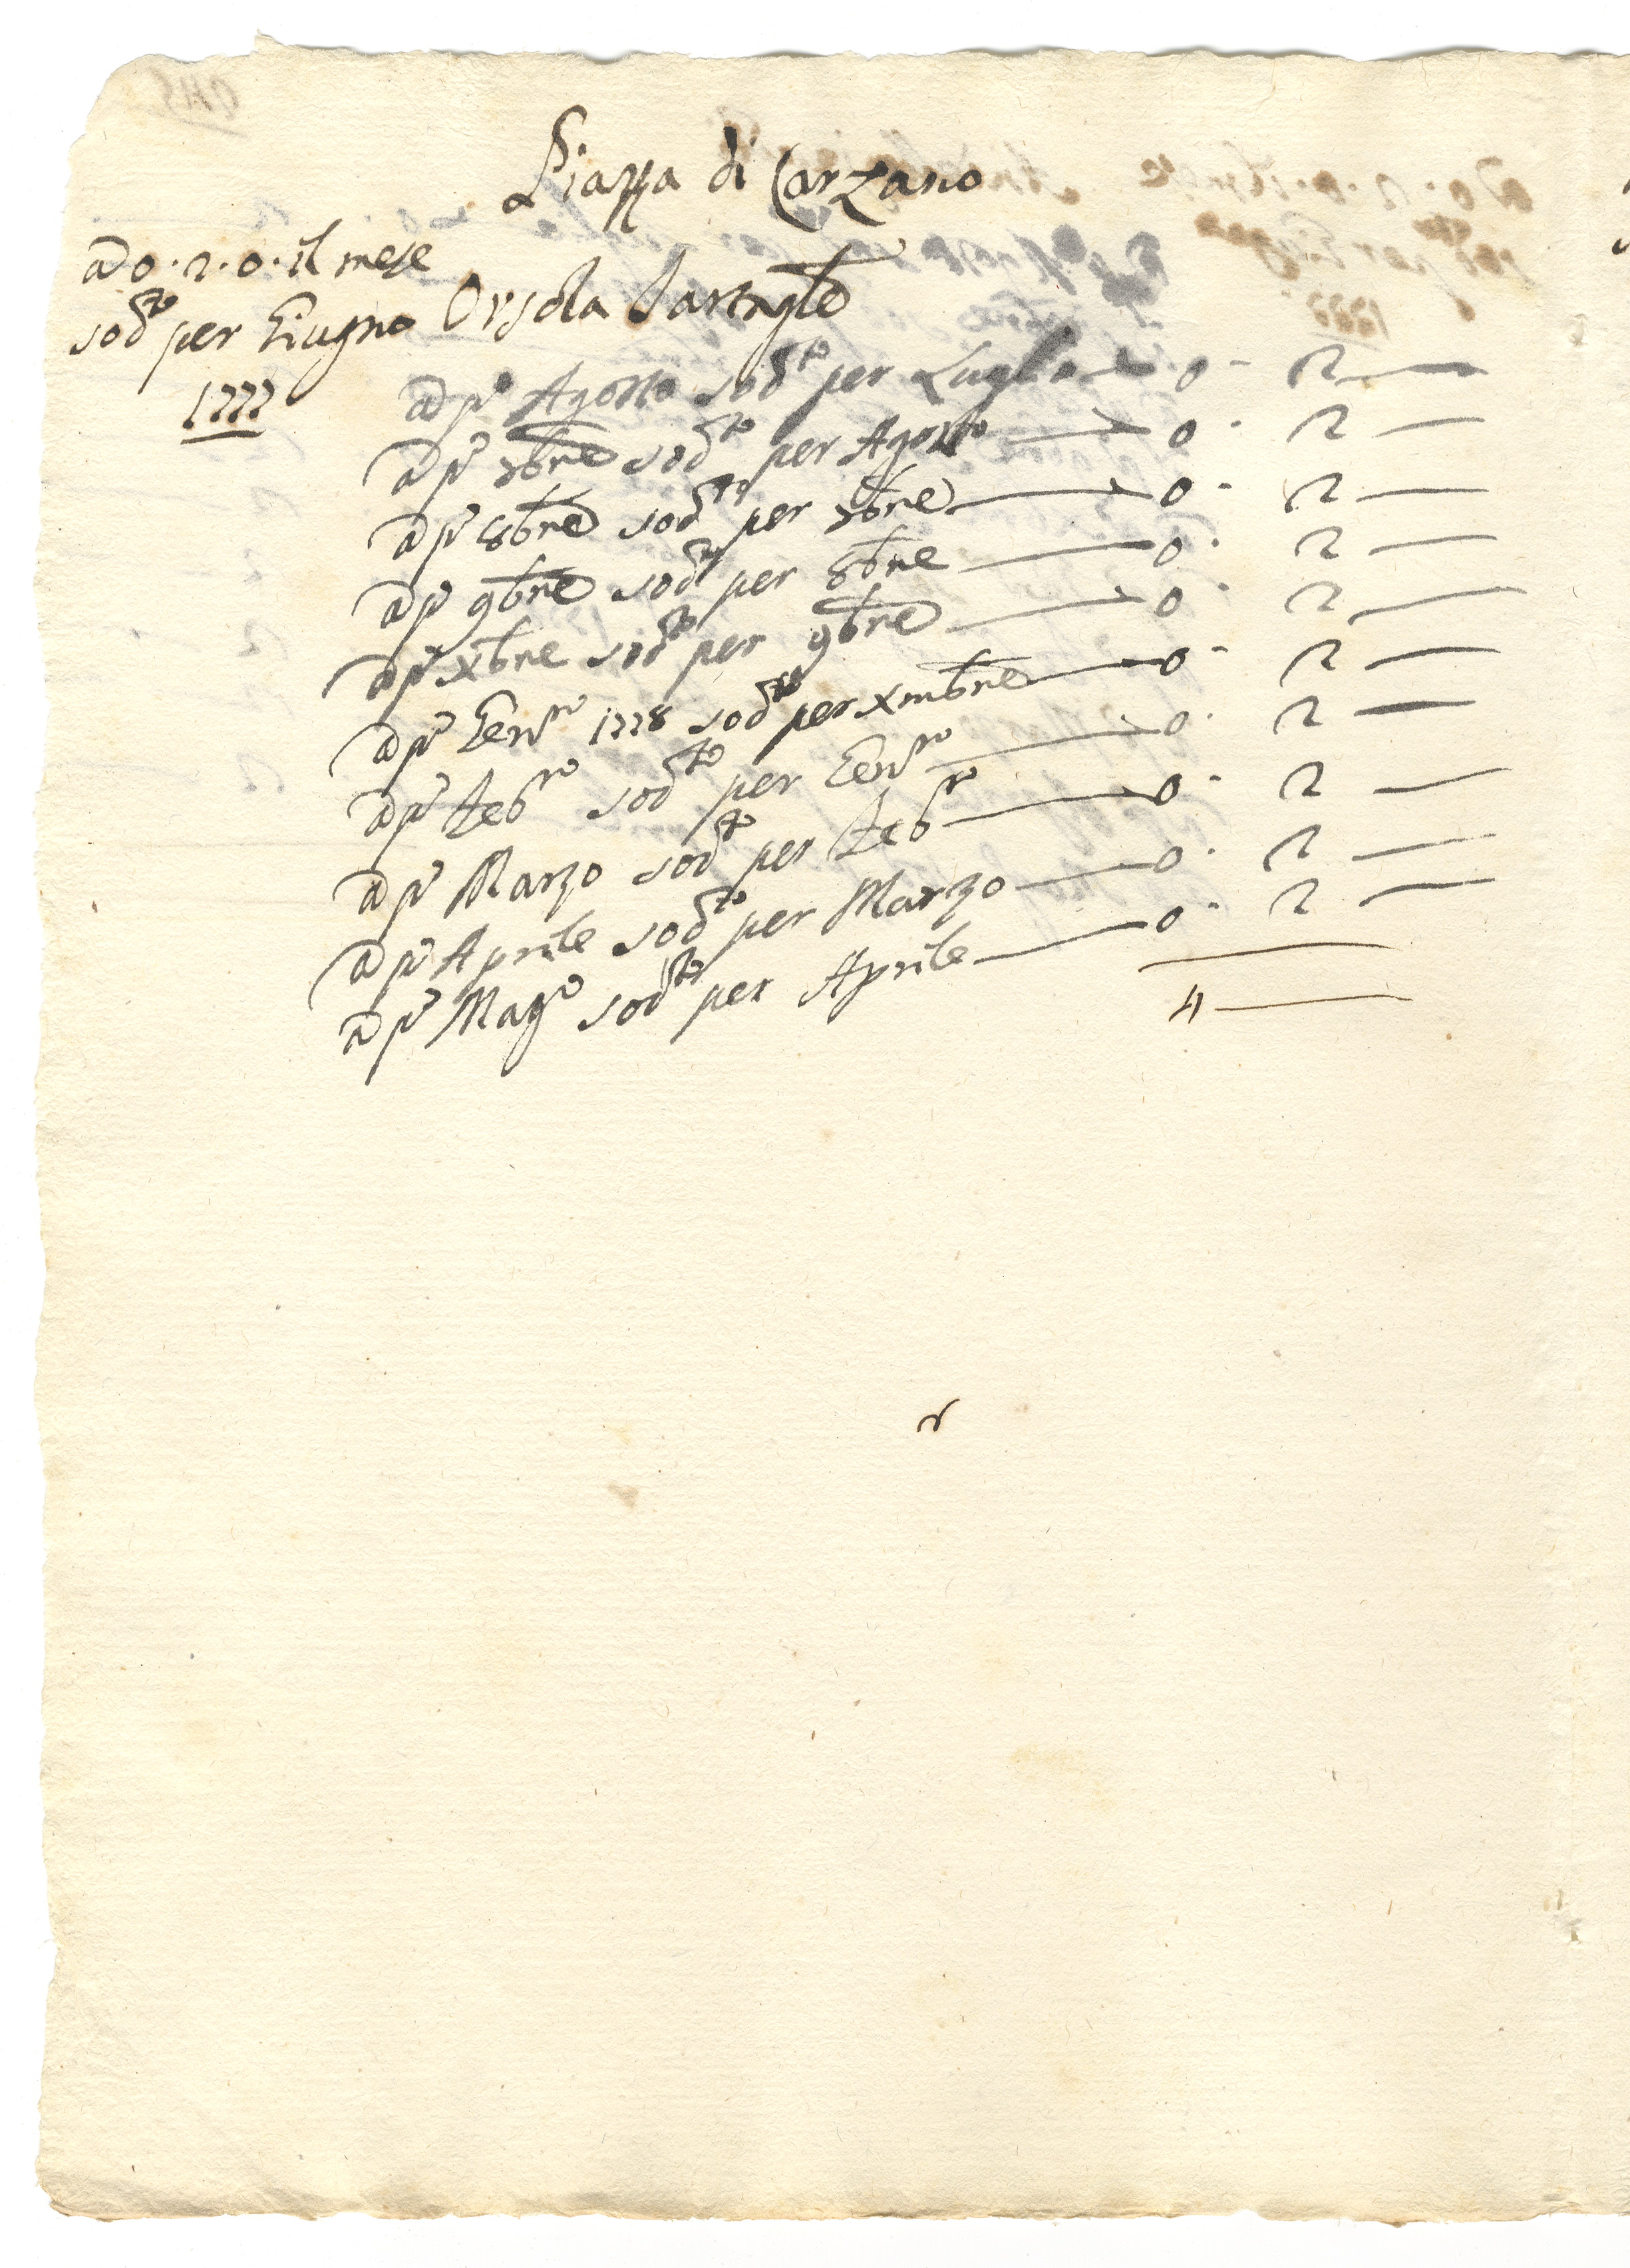 Piazza di Carzano
a 0.2.0. il mese
sod.to per Giugno
1777
Orsola
a p.o Agosto sod.to per Luglio 0 - 2 —
a p.o 7bre sod.to per Agosto 0 . 2 —
a p.o 8bre sod.to per 7bre 0 - 2 —
a p.o 9bre sod.to per 8bre 0 . 2 —
a p.o xbre sod.to per 9bre 0 . 2 —
a p.o Gen.ro 1778 sod.to per xmbre 0 - 2 —
a p.o Feb.ro sod.to per Gen.ro 0 . 2 —
a p.o Marzo sod.to per Feb.ro 0 - 2 —
a p.o Aprile sod.to per Marzo 0 . 2 —
a p.o Mag.o sod.to per Aprile 0 - 2 —
4 —